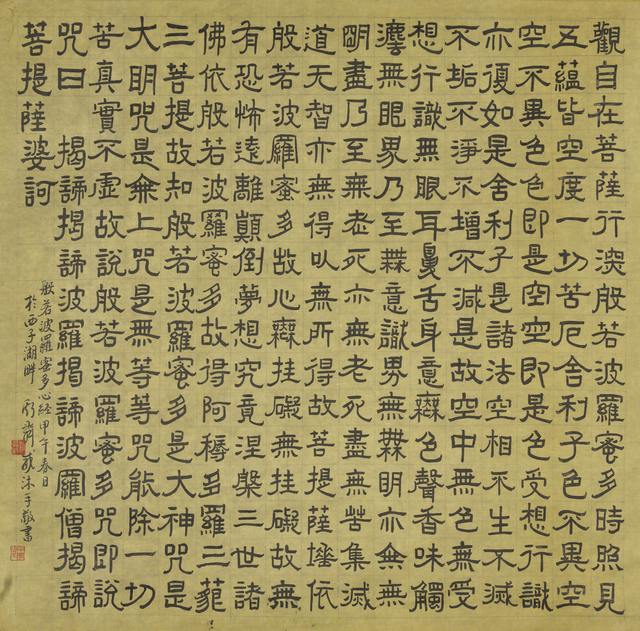 觀自在菩薩行深般若波羅蜜多時照見
五蘊皆空度一切苦厄舍利子色不異空
空不異色色即是空空即是色受想行識
亦復如是舍利子是諸法空相不生不滅
不垢不淨不增不減是故空中無色無受
想行識無眼耳鼻舌身意無色聲香味觸
灋無眼界乃至無意識界無無明亦無無
明盡乃至無老死亦無老死盡無苦集滅
道无智亦無得以無所得故菩提薩埵依
般若波羅蜜多故心無挂礙無挂礙故無
有恐怖遠離顛倒夢想究竟涅槃三世諸
佛依般若波羅蜜多故得阿耨多羅三藐
三菩提故知般若波羅蜜多是大神咒是
大明咒是無上咒是無等等咒能除一切
苦真實不虛故說般若波羅蜜多咒即說
咒曰 揭諦揭諦波羅揭諦波羅僧揭諦
菩提薩婆訶
般若波羅蜜多心經甲午春日
於西子湖畔 沐手敬書